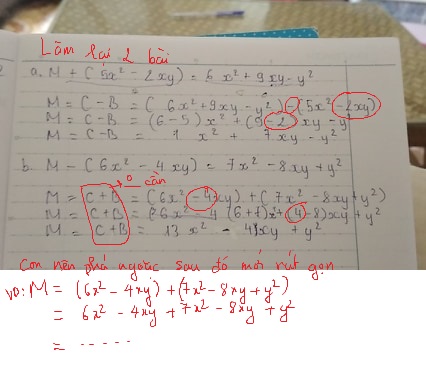 Làm lại 2 bài
a. M + (5x² - 2xy) = 6x² + 9xy - y²
M = C - B = (6x² + 9xy - y²) - (5x² - 2xy)
M = C - B = (6 - 5) x² + (9 - 2) xy - y
M = C - B = 1 x² + 7xy - y²
b. M - (6x² - 4xy) = 7x² - 8xy + y²
→ 0 cần
M = C + B = (6x² - 4xy) + (7x² - 8xy + y²)
M = C + B = (6 + 7) x² + (4 - 8) xy + y²
M = C + B = 13x² - 4xy + y²
Con nên phá ngoặc sau đó mới rút gọn
VD: M = (6x² - 4xy) + (7x² - 8xy + y²)
= 6x² - 4xy + 7x² - 8xy + y²
= .....